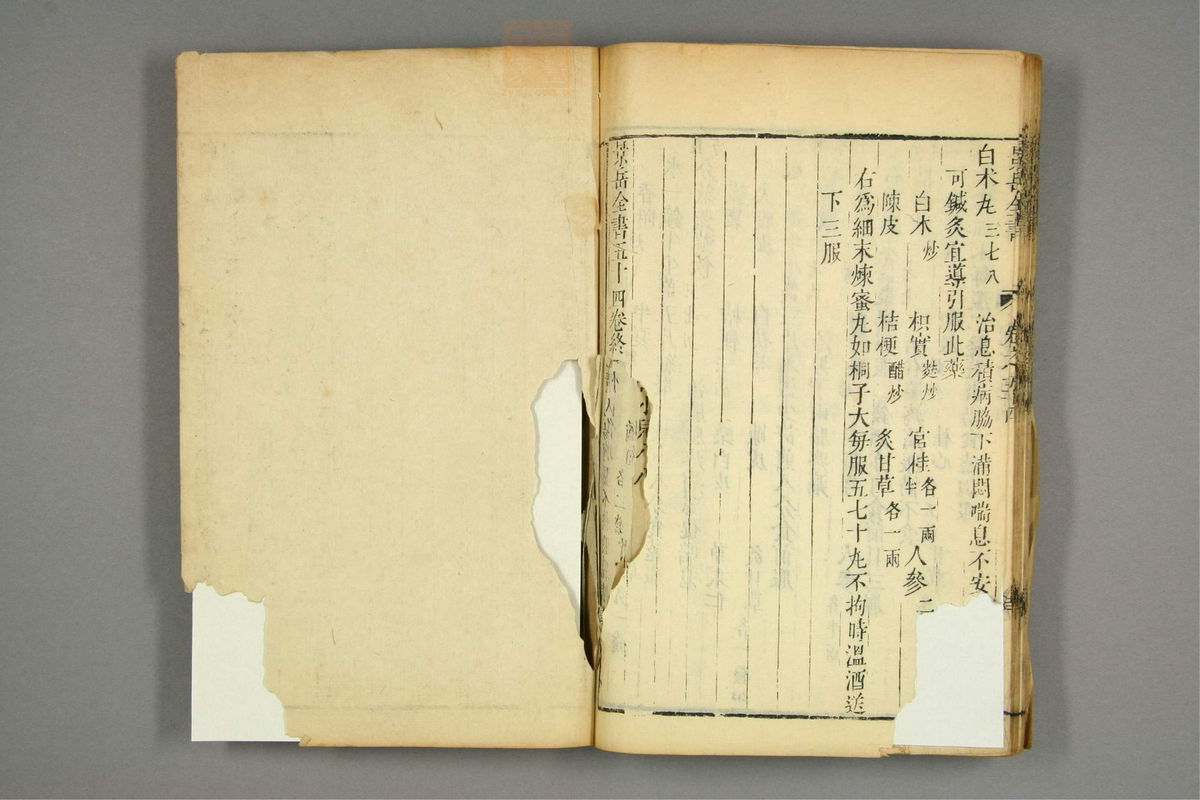 景岳全書
卷之五十四
白朮丸 三七八 治息積病脇下滿悶喘息不安
可鍼灸宜導引服此藥
白朮 炒 枳實 麩炒 官桂 各一兩半 人參 二
陳皮 桔梗 醋炒 炙甘草 各一兩
右爲細末煉蜜丸如桐子大每服五七十丸不拘時溫酒送
下三服
景岳全書五十四卷終